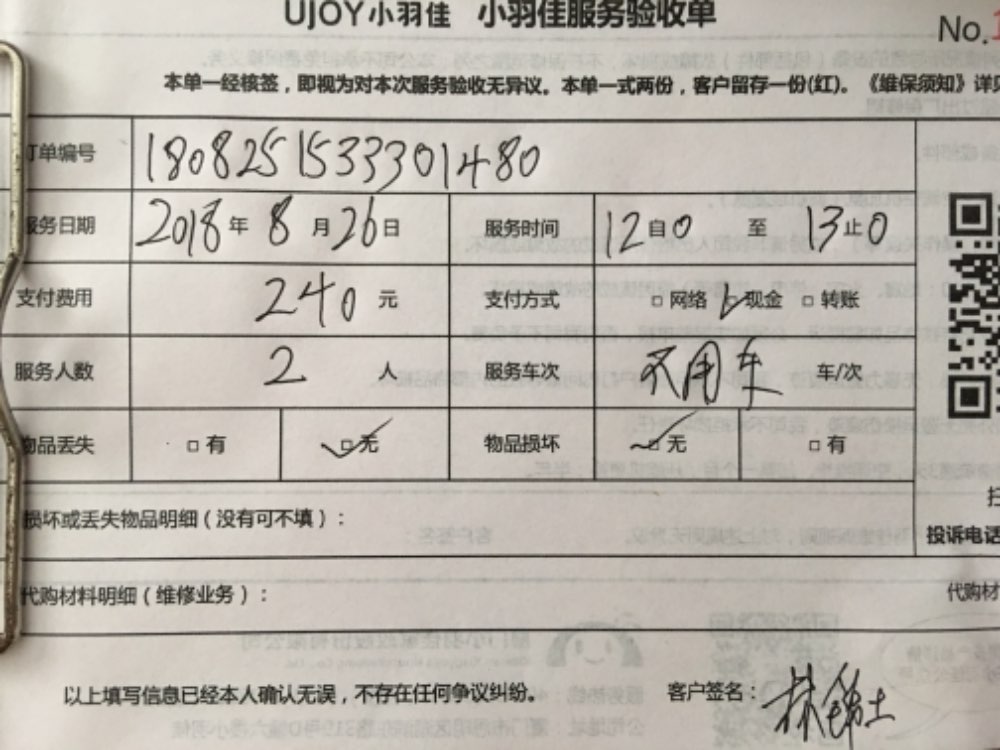 UJOY小羽佳 小羽佳服务验收单
No.1
本单一经核签，即视为对本次服务验收无异议。本单一式两份，客户留存一份(红)。《维保须知》详见
订单编号 18082515333301480
服务日期 2018年8月26日 服务时间 12自0 至 13止0
支付费用 240元 支付方式 □网络 ☑现金 □转账
服务人数 2人 服务车次 不用车 车/次
物品丢失 □有 ☑无 物品损坏 ☑无 □有
损坏或丢失物品明细（没有可不填）：
投诉电话
代购材料明细（维修业务）： 代购材
以上填写信息已经本人确认无误，不存在任何争议纠纷。 客户签名：